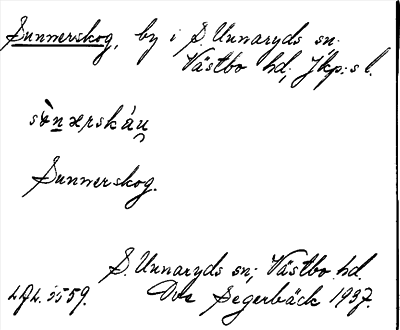 Sunnerskog, by i S. Unnaryds sn.
Västbo hd; Jkp:s l.
Sunnerskog.
S. Unnaryds sn; Västbo hd.
Segerbäck 1937.